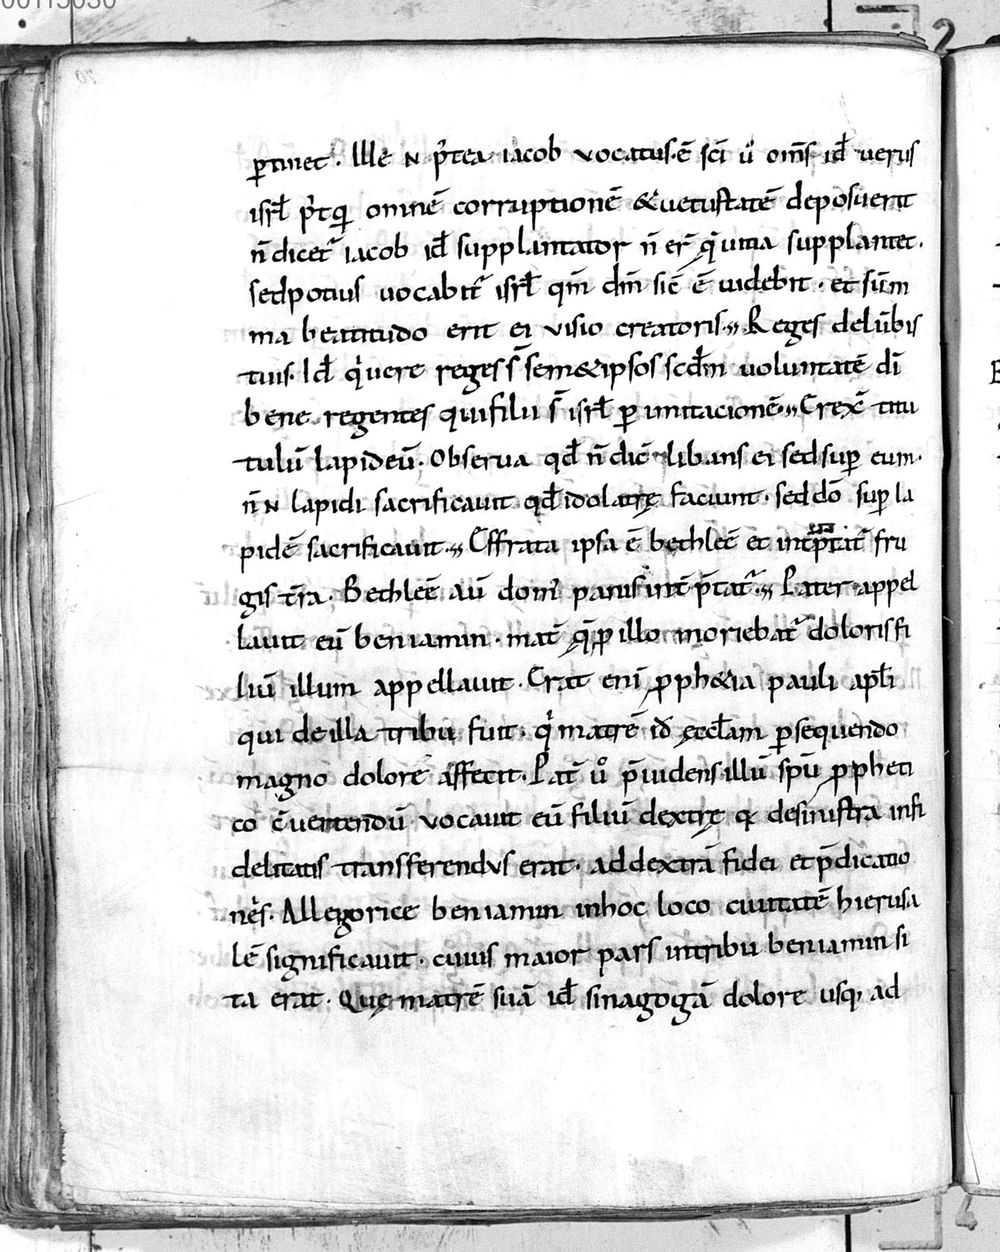 00115030
2
ꝑtinet. Ille ɴ p̄tea iacob vocatus. ē sc̄i ů om̄s id̄ uerus
isrł p̄tq̄ omnē corruptionē & uetustatē deposuerit
n̄ dicet᷑ iacob id̄ supplantator n̄ er̄ q̇ uitia supplantet.
sed potius uocabit᷑ isrł qm̄ dm̄ sic̄ ē uidebit. et sūm
ma beatitudo erit ei visio creatoris. Reges de lūbis
tuis. Id̄ q̇uere reges s̄ semet ipsos scd̄m uoluntatē dī
bene regentes qui filii s̄ isrł ꝑ imitacionē. Erex̄ titu
tulū lapideū. Observa qd̄ n̄ dic̄ libans ei sed suꝑ eum.
n̄ ɴ lapidi sacrificauit qd̄ idolatrę faciunt. sed dō suꝑ la
pidē sacrificauit. Effrata ipsa ē bethleē et int̄p̄tat᷑ fru
gis t̄ra. Bethleē aū dom᷒ panis int̄p̄tat᷑. Pater appel
lauit eū beniamin. mat̄ q̄ ꝑ illo moriebat᷑ doloris fi
liū illum appellauit. Erat enī ꝓphetia pauli apłi
qui de illa tribu fuit. q̇ matrē id̄ ęccłam ꝑsequendo
magno dolore affecit. Pat̄ ů p̄uidens illū spū ꝓpheti
co c̄uertendū vocauit eū filiū dextrę q̄ de sinistra infi
delitatis transferendvs erat. ad dextrā fidei et p̄dicatio
nes. Allegorice beniamin in hoc loco ciuitatē hierusa
lē significauit. cuius maior pars in tribu beniamin si
ta erat. Quę matrē suā id̄ sinagogā dolore usq; ad